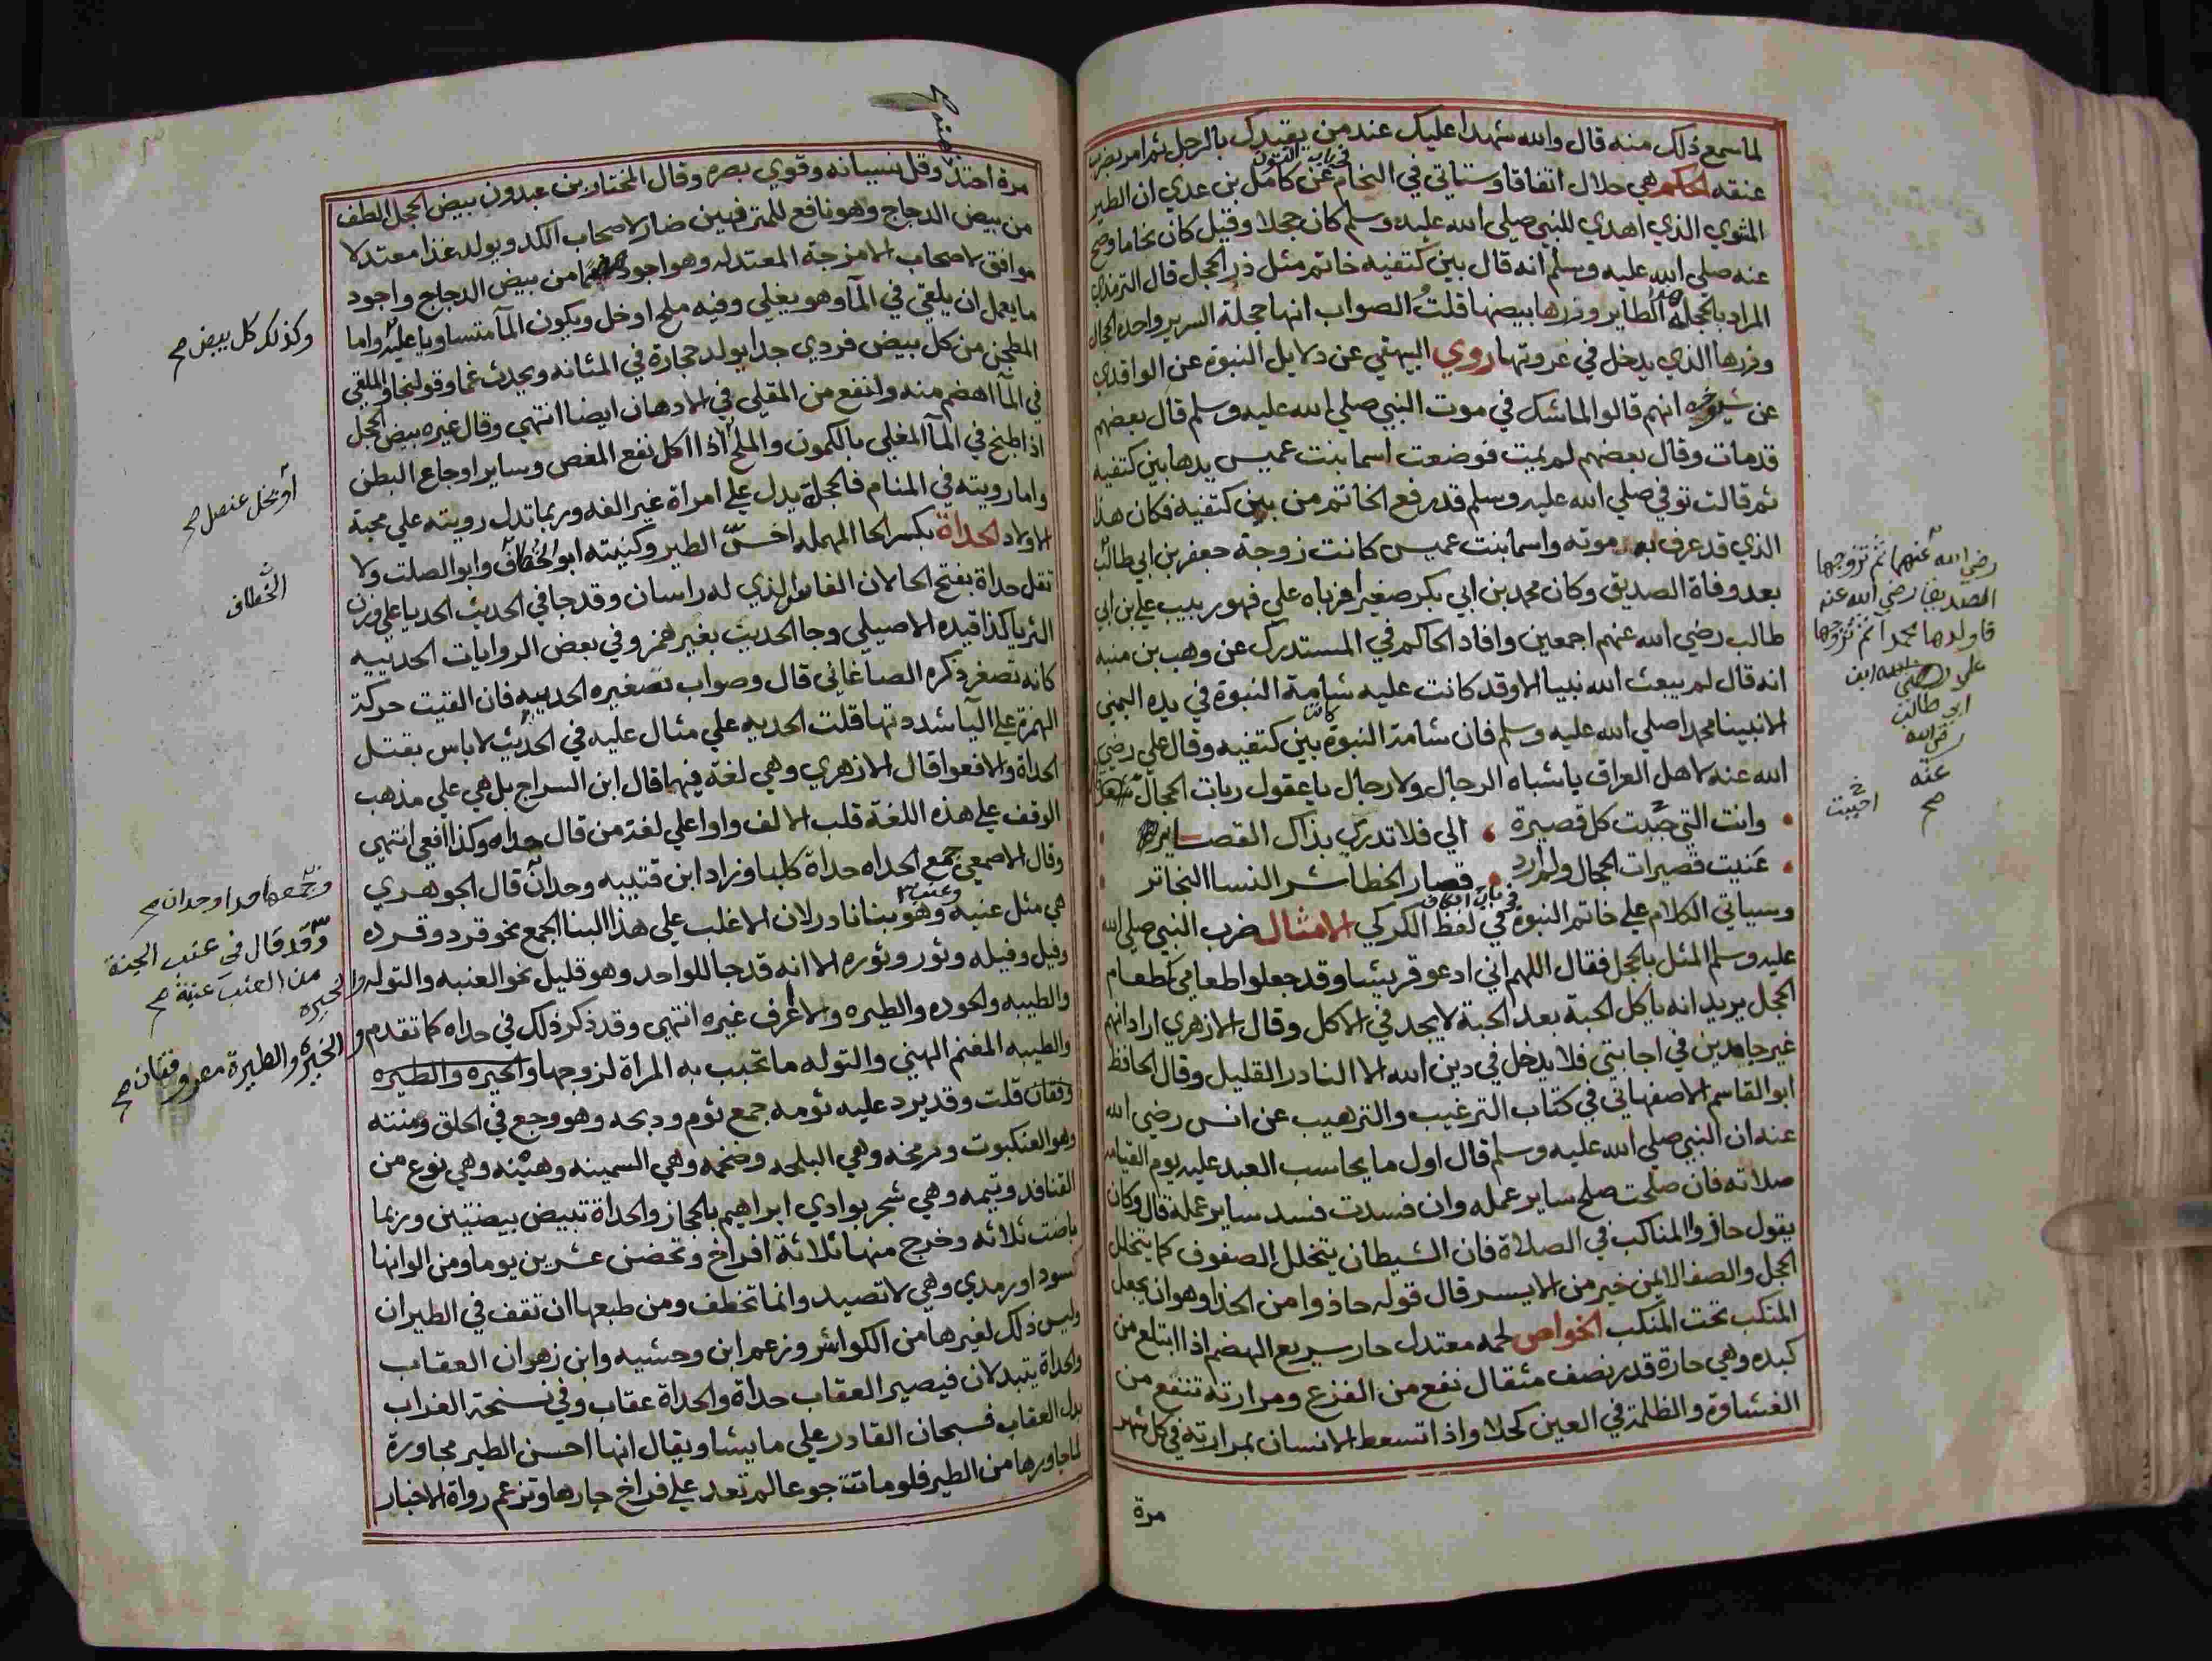 لما سمع ذلك منه قال والله شهدا عليك عند من يقيدك بالرجل ثم امر بضرب
عنقه الحكم هي حلال اتفاقا وستاتي في النحام في باب النون عن كامل بن عدي ان الطير
المشوي الذي اهدي للنبي صلي الله عليه وسلم كان حجلا وقيل كان نحاما وصح
عنه صلي الله عليه وسلم انه قال بين كتفيه خاتم مثل زر الحجل قال الترمذي
المراد بالحجلة هذا الطاير وزرها بيضها قلت الصواب انها حجلة السرير واحدة الحجال
وزرها الذي يدخل في عروتها روي البيهقي عن دلايل النبوة عن الواقدي
عن شيوخه انهم قالوا لما شك في موت النبي صلي الله عليه وسلم قال بعضهم
قد مات وقال بعضهم لم يمت فوضعت اسما بنت عميس يدها بين كتفيه
ثم قالت توفي صلي الله عليه وسلم قد رفع الخاتم من بين كتفيه فكان هذا
الذي قد عرف به موته واسما بنت عميس كانت زوجة جعفر بن ابي طالب
بعد وفاة الصديق وكان محمد بن ابي بكر صغيرا فرباه علي فهو ربيب علي ابن ابي
طالب رضي الله عنهم اجمعين وافاد الحاكم في المستدرك عن وهب بن منبه
انه قال لم يبعث الله نبيا الا وقد كانت عليه شامة النبوة في يده اليمني
الا نبينا محمدا صلي الله عليه وسلم فان شامة النبوة كانت بين كتفيه وقال علي رضي
الله عنه لاهل العراق يا اشباه الرجال ولا رجال يا عقول ربات الحجال شعر
وانت التي حببت كل قصيرة الي فلا تدري بذاك القصاير
عنيت قصيرات الحجال ولم ارد قصار الخطا شر النسا البحاتر
وسياتي الكلام علي خاتم النبوة في باب الكاف في لفظ الكركي الامثال ضرب النبي صلي الله
عليه وسلم المثل بالحجل فقال اللهم اني ادعو قريشا وقد جعلوا طعامي كطعام
الحجل يريد انه ياكل الحبة بعد الحبة لا يجد في الاكل وقال الازهري اراد انهم
غير جادين في اجابتي فلا يدخل في دين الله الا النادر القليل وقال الحافظ
ابو القاسم الاصفهاني في كتاب الترغيب والترهيب عن انس رضي الله
عنه ان النبي صلي الله عليه وسلم قال اول ما يحاسب العبد عليه يوم القيامه
صلاته فان صلحت صلح ساير عمله وان فسدت فسد ساير عمله قال وكان
يقول حاذوا المناكب في الصلاة فان الشيطان يتخلل الصفوف كما يتخلل
الحجل والصف الايمن خير من الايسر قال قوله حاذوا من الحذا وهو ان يجعل
المنكب تحت المنكب الخواص لحمه معتدل حار سريع الهضم اذا ابتلع من
كبده وهي حارة قدر نصف مثقال نفع من الفزع ومرارته تنفع من
الغشاوة والظلمة في العين كحلا واذا تسعط الانسان بمرارته في كل شهر
مرة
رضي الله عنهما ثم تزوجها
الصديق رضي الله عنه
فاولدها محمدا ثم تزوجها
علي ابن
ابي طالب
رضي الله
عنه
صح
احببت
مرة احتد وقل نسيانه وقوي بصره وقال المختار بن عبدون بيض الحجل الطف
من بيض الدجاج وهو نافع للمترفهين ضار لاصحاب الكد ويولد غذا معتدلا
موافق لاصحاب الامزجة المعتدله وهو اجود من بيض الدجاج واجود
ما يعمل ان يلقي في الما وهو يغلي وفيه ملح او خل ويكون الما متساويا عليه واما
المطجن من كل بيض فردي جدا يولد حجارة في المثانه ويحدث غما وقولنجا والملقي
في الما اهضم منه وانفع من المقلي في الادهان ايضا انتهي وقال غيره بيض الحجل
اذا طبخ في الما المغلي بالكمون والملح اذا اكل نفع المغص وساير اوجاع البطن
واما رويته في المنام فالحجلة يدل علي امراة غير الفه وربما تدل رويته علي محبة
الاولاد الحداة بكسر الحا المهمله اخس الطير وكنيته ابو الخطاف وابو الصلت ولا
تقل حداة بفتح الحا لان الفاس الذي له راسان وقد جا في الحديث الحديا علي وزن
الثريا كذا قيده الاصيلي وجا الحديث بغير همز وفي بعض الروايات الحدييه
كانه تصغر ذكره الصاغاني قال وصواب تصغيره الحدييه فان القيت حركة
الهمزة علي اليا شددتها قلت الحديه علي مثال عليه في الحديث لا باس بقتل
الحداة والافعوا قال الازهري وهي لغة فيهما قال ابن السراج بل هي علي مذهب
الوقف علي هذه اللغة قلب الالف واوا علي لغة من قال حداه وكذا افعي انتهي
وقال الاصمعي جمع الحداه حداة كلها وزاد ابن قتيبه وحدان قال الجوهري
هي مثل عنبه وعنب وهو بنا نادر لان الاغلب علي هذا البنا الجمع نحو قرد وقرده
وفيل وفيله وثور وثوره الا انه قد جا للواحد وهو قليل نحو العنبه والتوله والحبره
والطيبه والخوده والطيره والا اعرف غيره انتهي وقد ذكر ذلك في حداه كما تقدم
والطيبه المغنم الهني والتوله ما تحبب به المراة لزوجها والحبره والطيره
وفقان قلت وقد يرد عليه ثومه جمع ثوم ودبحه وهو وجع في الحلق ومننه
وهو العنكبوت ومرخه وهي البلحه وضخمه وهي السمينه وهينه وهي نوع من
القنافد وتيمه وهي شجر بوادي ابراهيم بالحجاز والحداة تبيض بيضتين وربما
باضت ثلاثه وخرج منها ثلاثة افراخ وتحضن عشرين يوما ومن الوانها
اسود او رمدي وهي لا تصيد وانما تخطف ومن طبعها ان تقف في الطيران
وليس ذلك لغيرها من الكواسر وزعم ابن وحشيه وابن زهر ان العقاب
والحداة يتبدلان فيصير العقاب حداة والحداة عقاب وفي نسخة الغراب
بدل العقاب فسبحان القادر علي ما يشا ويقال انها احسن الطير مجاورة
لما جاورها من الطير فلو ماتت جوعا لم تعد علي فراخ جارها وتزعم رواة الاخبار
وكذلك كل بيض صح
او بخل عنصل صح
الخطاف
وقد قال في عنب الجنة
من العنب عنبة صح
والخيرة والطيرة معروفقان صح